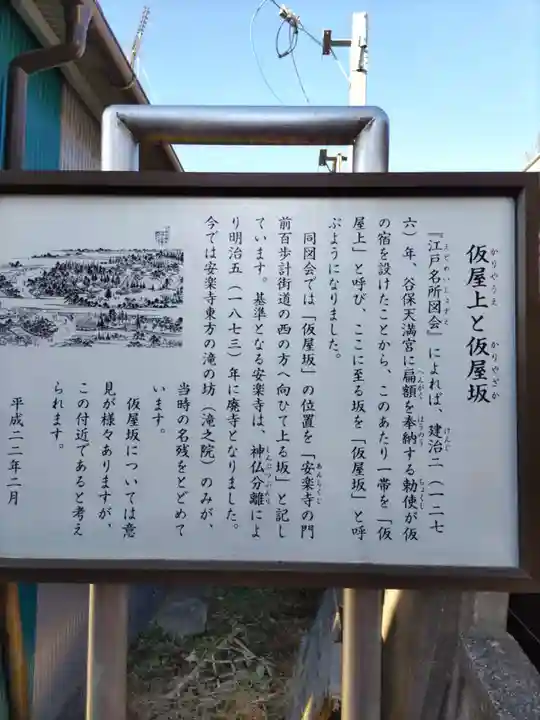 仮屋上と仮屋坂
かりやうえ
かりやざか
『江戸名所図会』によれば、建治二(一二七
えどめいしょずえ
けんじ
六)年、谷保天満宮に扁額を奉納する勅使が仮
へんがく
ほうのう
ちょくし
の宿を設けたことから、このあたり一帯を「仮
屋上」と呼び、ここに至る坂を「仮屋坂」と呼
ぶようになりました。
同図会では「仮屋坂」の位置を「安楽寺の門
あんらくじ
前百歩計街道の西の方へ向ひて上る坂」と記し
ています。基準となる安楽寺は、神仏分離によ
しんぶつぶんり
り明治五(一八七三)年に廃寺となりました。
今では安楽寺東方の滝の坊(滝之院)のみが、
当時の名残をとどめて
います。
仮屋坂については意
見が様々ありますが、
この付近であると考え
られます。
平成二二年二月